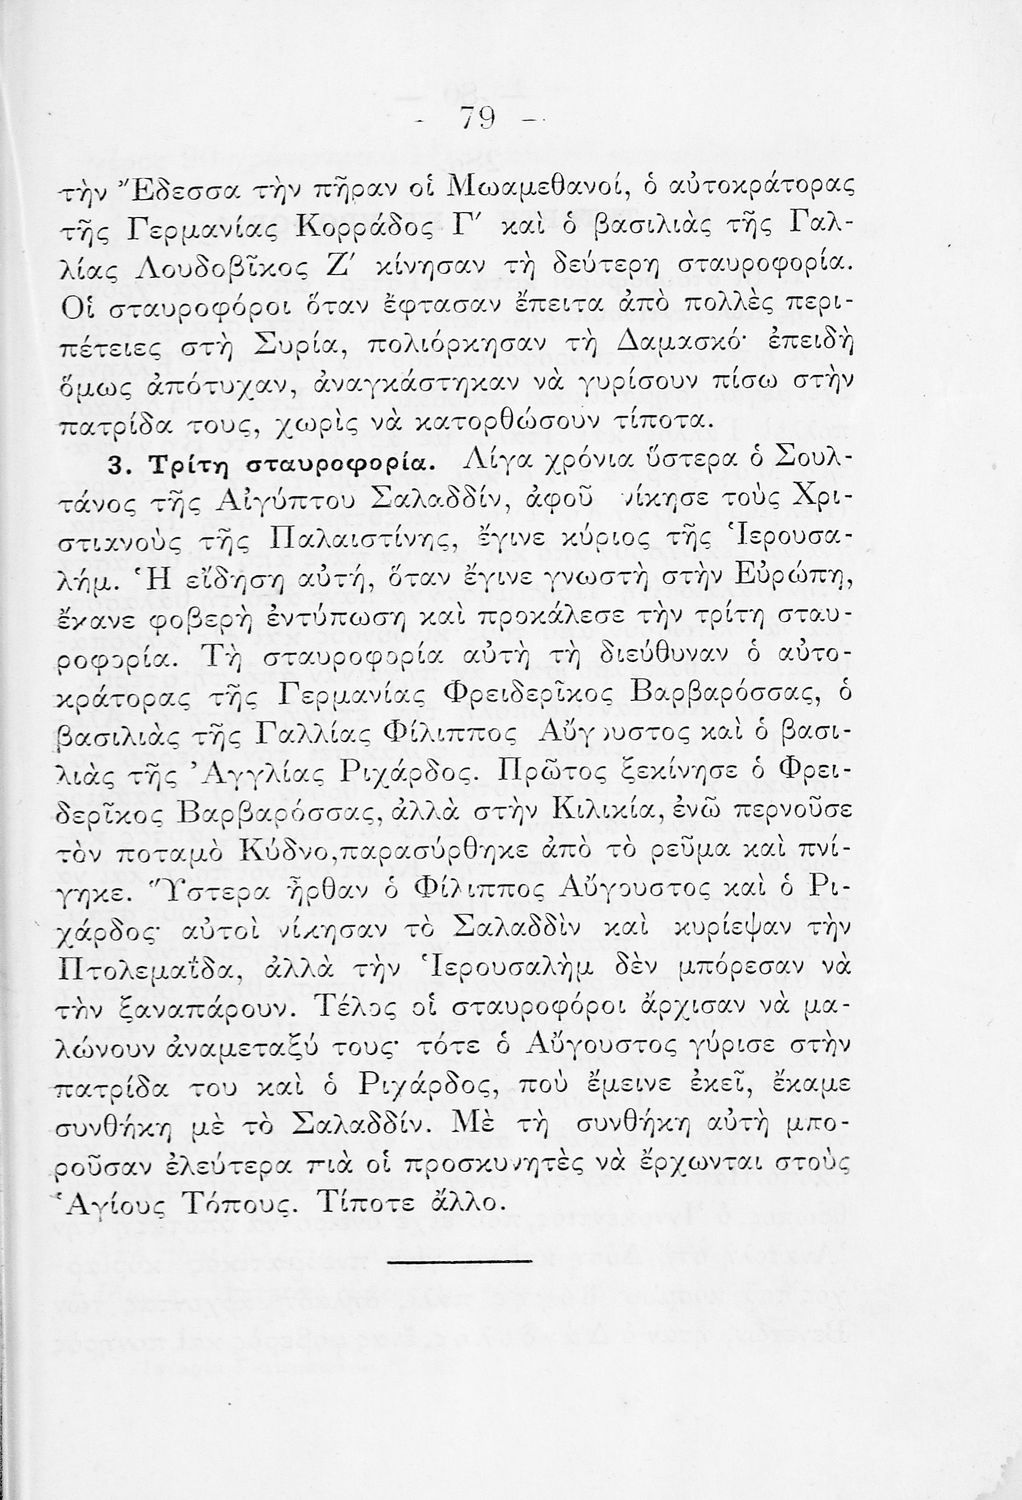 - 79 -
τὴν Ἔδεσσα τὴν πῆραν οἱ Μωαμεθανοί, ὁ αὐτοκράτορας
τῆς Γερμανίας Κορράδος Γʹ καὶ ὁ βασιλιὰς τῆς Γαλ-
λίας Λουδοβῖκος Ζʹ κίνησαν τὴ δεύτερη σταυροφορία.
Οἱ σταυροφόροι ὅταν ἔφτασαν ἔπειτα ἀπὸ πολλὲς περι-
πέτειες στὴ Συρία, πολιόρκησαν τὴ Δαμασκό· ἐπειδὴ
ὅμως ἀπότυχαν, ἀναγκάστηκαν νὰ γυρίσουν πίσω στὴν
πατρίδα τους, χωρὶς νὰ κατορθώσουν τίποτα.
3. Τρίτη σταυροφορία. Λίγα χρόνια ὕστερα ὁ Σουλ-
τάνος τῆς Αἰγύπτου Σαλαδδίν, ἀφοῦ νίκησε τοὺς Χρι-
στιανοὺς τῆς Παλαιστίνης, ἔγινε κύριος τῆς Ἱερουσα-
λήμ. Ἡ εἴδηση αὐτή, ὅταν ἔγινε γνωστὴ στὴν Εὐρώπη,
ἔκανε φοβερὴ ἐντύπωση καὶ προκάλεσε τὴν τρίτη σταυ-
ροφορία. Τὴ σταυροφορία αὐτὴ τὴ διεύθυναν ὁ αὐτο-
κράτορας τῆς Γερμανίας Φρειδερῖκος Βαρβαρόσσας, ὁ
βασιλιὰς τῆς Γαλλίας Φίλιππος Αὔγουστος καὶ ὁ βασι-
λιὰς τῆς Ἀγγλίας Ριχάρδος. Πρῶτος ξεκίνησε ὁ Φρει-
δερῖκος Βαρβαρόσσας, ἀλλὰ στὴν Κιλικία, ἐνῶ περνοῦσε
τὸν ποταμὸ Κύδνο, παρασύρθηκε ἀπὸ τὸ ρεῦμα καὶ πνί-
γηκε. Ὕστερα ἦρθαν ὁ Φίλιππος Αὔγουστος καὶ ὁ Ρι-
χάρδος· αὐτοὶ νίκησαν τὸ Σαλαδδὶν καὶ κυρίεψαν τὴν
Πτολεμαΐδα, ἀλλὰ τὴν Ἱερουσαλὴμ δὲν μπόρεσαν νὰ
τὴν ξαναπάρουν. Τέλος οἱ σταυροφόροι ἄρχισαν νὰ μα-
λώνουν ἀναμεταξύ τους· τότε ὁ Αὔγουστος γύρισε στὴν
πατρίδα του καὶ ὁ Ριχάρδος, ποὺ ἔμεινε ἐκεῖ, ἔκαμε
συνθήκη μὲ τὸ Σαλαδδίν. Μὲ τὴ συνθήκη αὐτὴ μπο-
ροῦσαν ἐλεύτερα πιὰ οἱ προσκυνητὲς νὰ ἔρχωνται στοὺς
Ἁγίους Τόπους. Τίποτε ἄλλο.